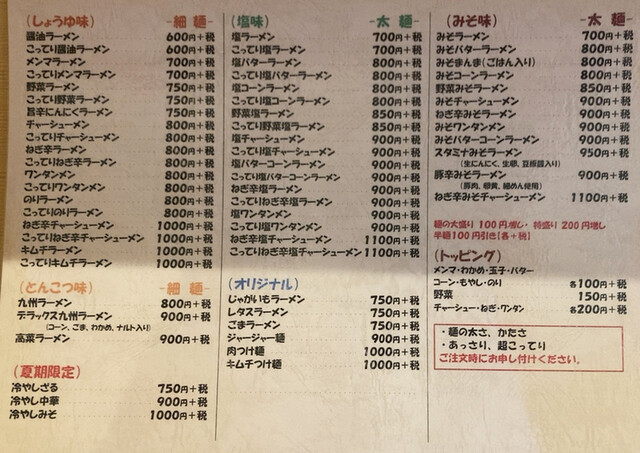 （しょうゆ味） -細麺-
醤油ラーメン 600円+税
こってり醤油ラーメン 600円+税
メンマラーメン 700円+税
こってりメンマラーメン 700円+税
野菜ラーメン 750円+税
こってり野菜ラーメン 750円+税
旨辛にんにくラーメン 750円+税
チャーシューメン 800円+税
こってりチャーシューメン 800円+税
ねぎ辛ラーメン 800円+税
こってりねぎ辛ラーメン 800円+税
ワンタンメン 800円+税
こってりワンタンメン 800円+税
のりラーメン 800円+税
こってりのりラーメン 800円+税
ねぎ辛チャーシューメン 1000円+税
こってりねぎ辛チャーシューメン 1000円+税
キムチラーメン 1000円+税
こってりキムチラーメン 1000円+税
（とんこつ味） -細麺-
九州ラーメン 800円+税
デラックス九州ラーメン 900円+税
（コーン、ごま、わかめ、ナルト入り）
高菜ラーメン 900円+税
（夏期限定）
冷やしざる 750円+税
冷やし中華 900円+税
冷やしみそ 1000円+税
（塩味） -太麺-
塩ラーメン 700円+税
こってり塩ラーメン 700円+税
塩バターラーメン 800円+税
こってり塩バターラーメン 800円+税
塩コーンラーメン 800円+税
こってり塩コーンラーメン 800円+税
野菜塩ラーメン 850円+税
こってり野菜塩ラーメン 850円+税
塩チャーシューメン 900円+税
こってり塩チャーシューメン 900円+税
塩バターコーンラーメン 900円+税
こってり塩バターコーンラーメン 900円+税
ねぎ辛塩ラーメン 900円+税
こってりねぎ辛塩ラーメン 900円+税
塩ワンタンメン 900円+税
こってり塩ワンタンメン 900円+税
ねぎ辛塩チャーシューメン 1100円+税
こってりねぎ辛塩チャーシューメン 1100円+税
（オリジナル）
じゃがいもラーメン 750円+税
レタスラーメン 750円+税
ごまラーメン 750円+税
ジャージャー麺 900円+税
肉つけ麺 1000円+税
キムチつけ麺 1000円+税
（みそ味） -太麺-
みそラーメン 700円+税
みそバターラーメン 800円+税
みそまんま（ごはん入り） 800円+税
みそコーンラーメン 800円+税
野菜みそラーメン 850円+税
みそチャーシューメン 900円+税
ねぎ辛みそラーメン 900円+税
みそワンタンメン 900円+税
みそバターコーンラーメン 900円+税
スタミナみそラーメン 950円+税
（生にんにく、生卵、豆板醤入り）
豚辛みそラーメン 900円+税
（豚肉、卵黄、細めん使用）
ねぎ辛みそチャーシューメン 1100円+税
麺の大盛り 100円増し・特盛り 200円増し
半麺100円引き【各+税】
（トッピング）
メンマ・わかめ・玉子・バター
コーン・もやし・のり 各100円+税
野菜 150円+税
チャーシュー・ねぎ・ワンタン 各200円+税
・麺の太さ、かたさ
・あっさり、超こってり
ご注文時にお申し付けください。